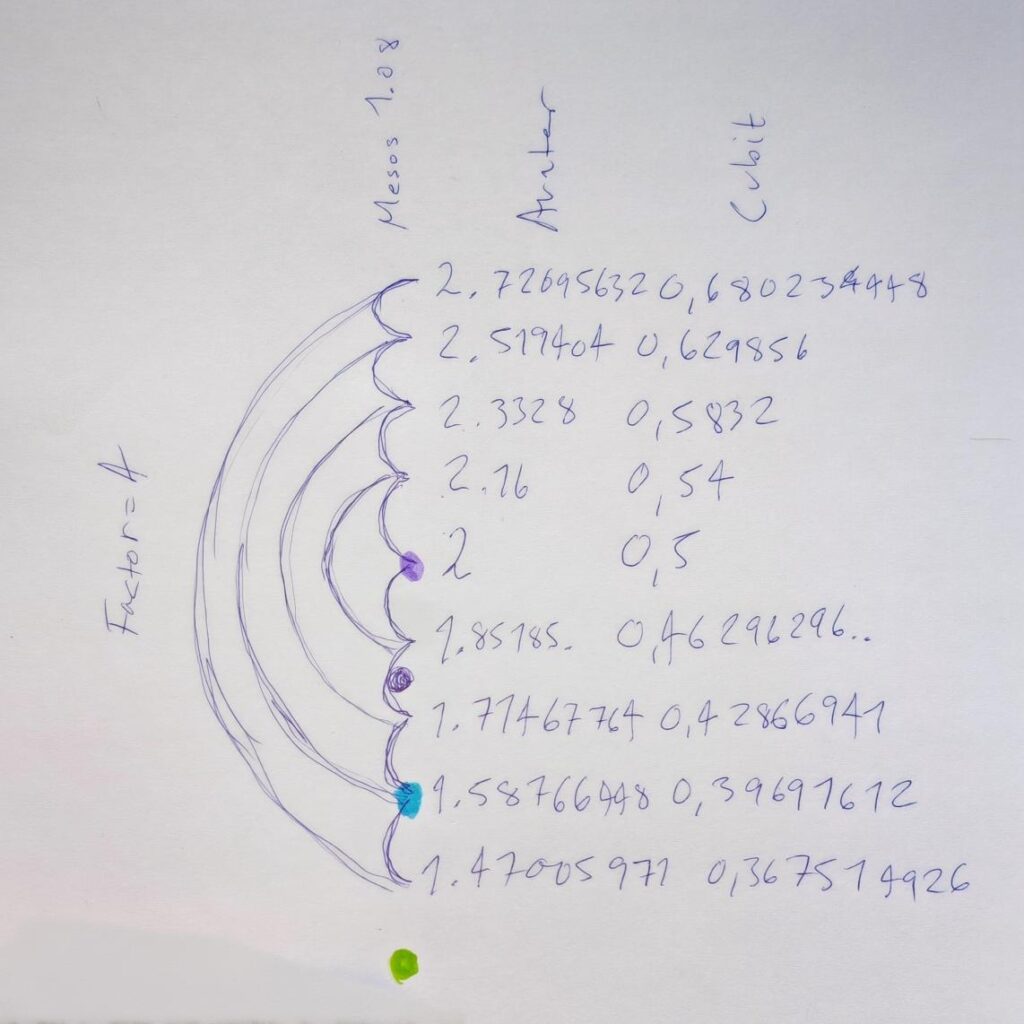 Mesos 1.08
Cubit
2.72095632 0,680234448
2.519404 0,629856
2.3328 0,5832
2.16 0,54
Factor=4
2 0,5
1.85185. 0,46296296..
1.71467764 0,42866941
1.58766448 0,39691612
1.47005971 0,367514926